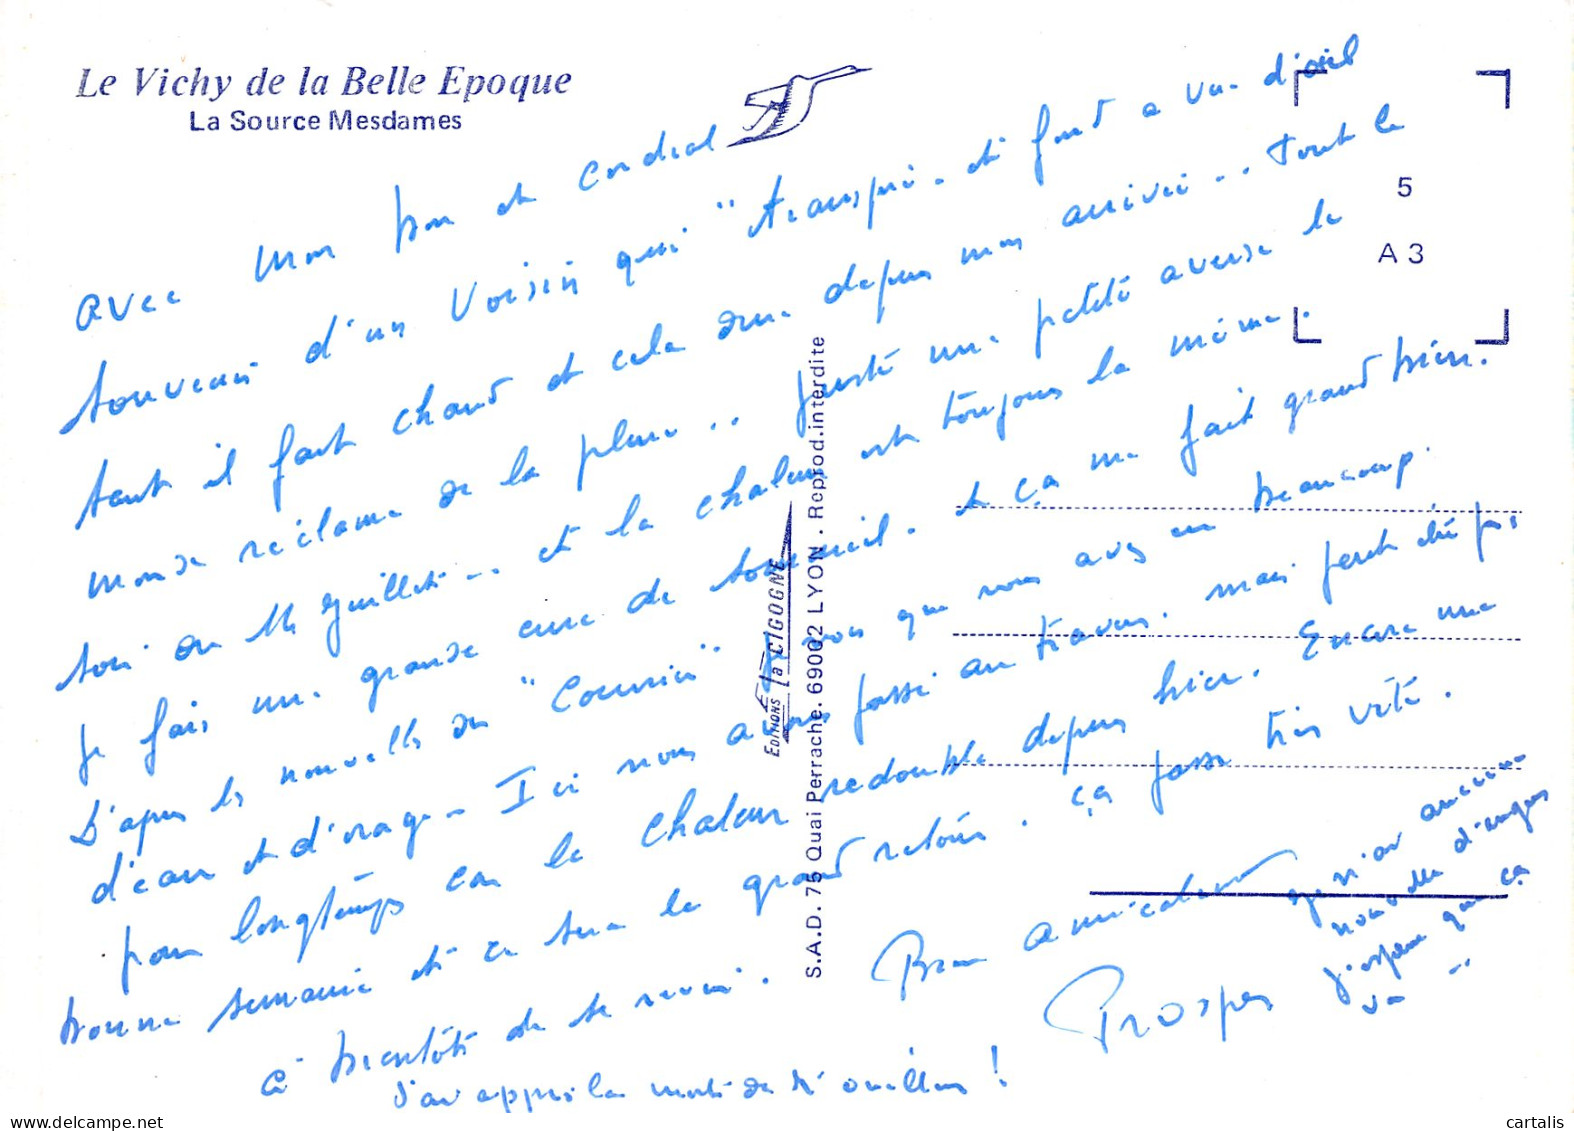 Le Vichy de la Belle Epoque
La Source Mesdames
5
A 3
avec mon bon et cordial
souvenir d'un voisin qui "transpire et fond a vue d'œil
tant il fait chaud et cela dure depuis mon arrivée.. Tout le
monde réclame de la pluie.. juste une petite averse le
soir du 14 Juillet.. et la chaleur est toujours la même.
Je fais une grande cure de sommeil. et ça me fait grand bien.
D'après les nouvelles du "Courrier" je vois que vous avez eu beaucoup
d'eau et d'orage - Ici nous avons passé au travers. mais peut être pas
pour longtemps car la chaleur redouble depuis hier. Encore une
bonne semaine et ce sera le grand retour. ça passe très vite.
à bientôt de se revoir. Bien amicalement
Prosper
J'ai appris la mort de Mr ouillon !
je n'ai aucune
nouvelle d'angers
j'espère que ça
va ..
EDITIONS la CIGOGNE
S.A.D. 75 Quai Perrache. 69002 LYON . Reprod.interdite
cartalis